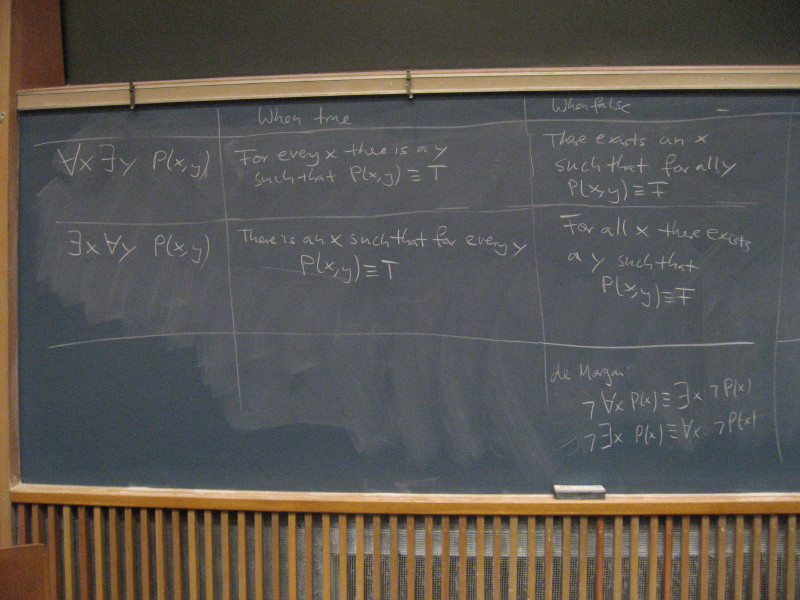 When true
When false
∀x ∃y P(x,y)
For every x there is a y
such that P(x,y) ≡ T
There exists an x
such that for all y
P(x,y) ≡ F
∃x ∀y P(x,y)
There is an x such that for every y
P(x,y) ≡ T
For all x there exists
a y such that
P(x,y) ≡ F
de Morgan:
¬∀x P(x) ≡ ∃x ¬P(x)
¬∃x P(x) ≡ ∀x ¬P(x)